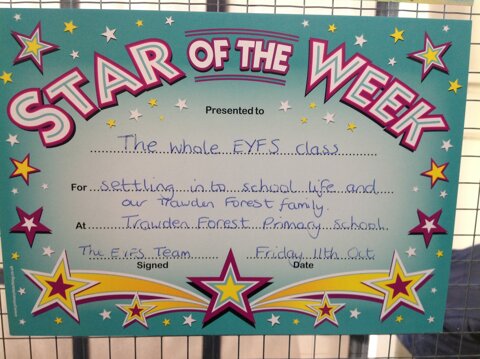 STAR OF THE WEEK
Presented to
The whole EYFS class
For settling in to school life and
our Trawden Forest family.
At Trawden Forest Primary school
The EYFS Team Friday 11th Oct
Signed Date